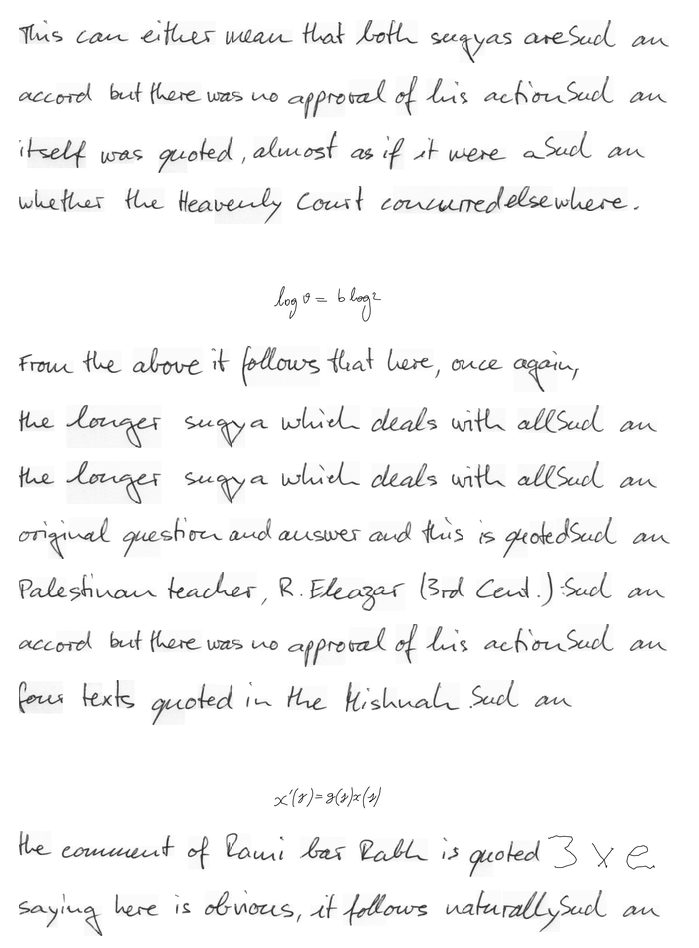 This can either mean that both sugyas are Sud an
accord but there was no approval of his action Sud an
itself was quoted, almost as if it were a Sud an
whether the Heavenly Court concurred elsewhere.
log σ = b log 2
From the above it follows that here, once again,
the longer sugya which deals with all Sud an
the longer sugya which deals with all Sud an
original question and answer and this is quoted Sud an
Palestinan teacher, R. Eleazar (3rd Cent.): Sud an
accord but there was no approval of his action Sud an
four texts quoted in the Mishnah. Sud an
x'(z)=g(z)x(z)
the comment of Rami bar Rabh is quoted 3 x e
saying here is obvious, it follows naturally Sud an